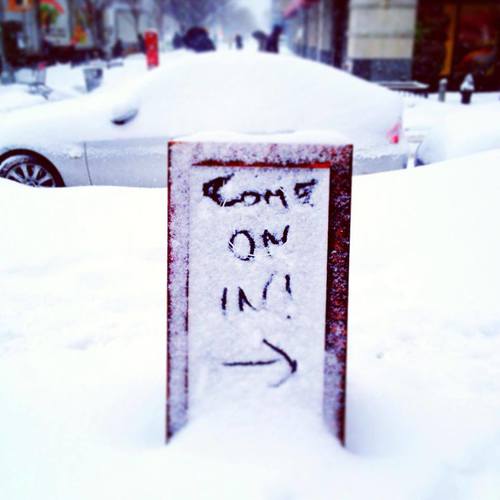 COME
ON
IN!
→